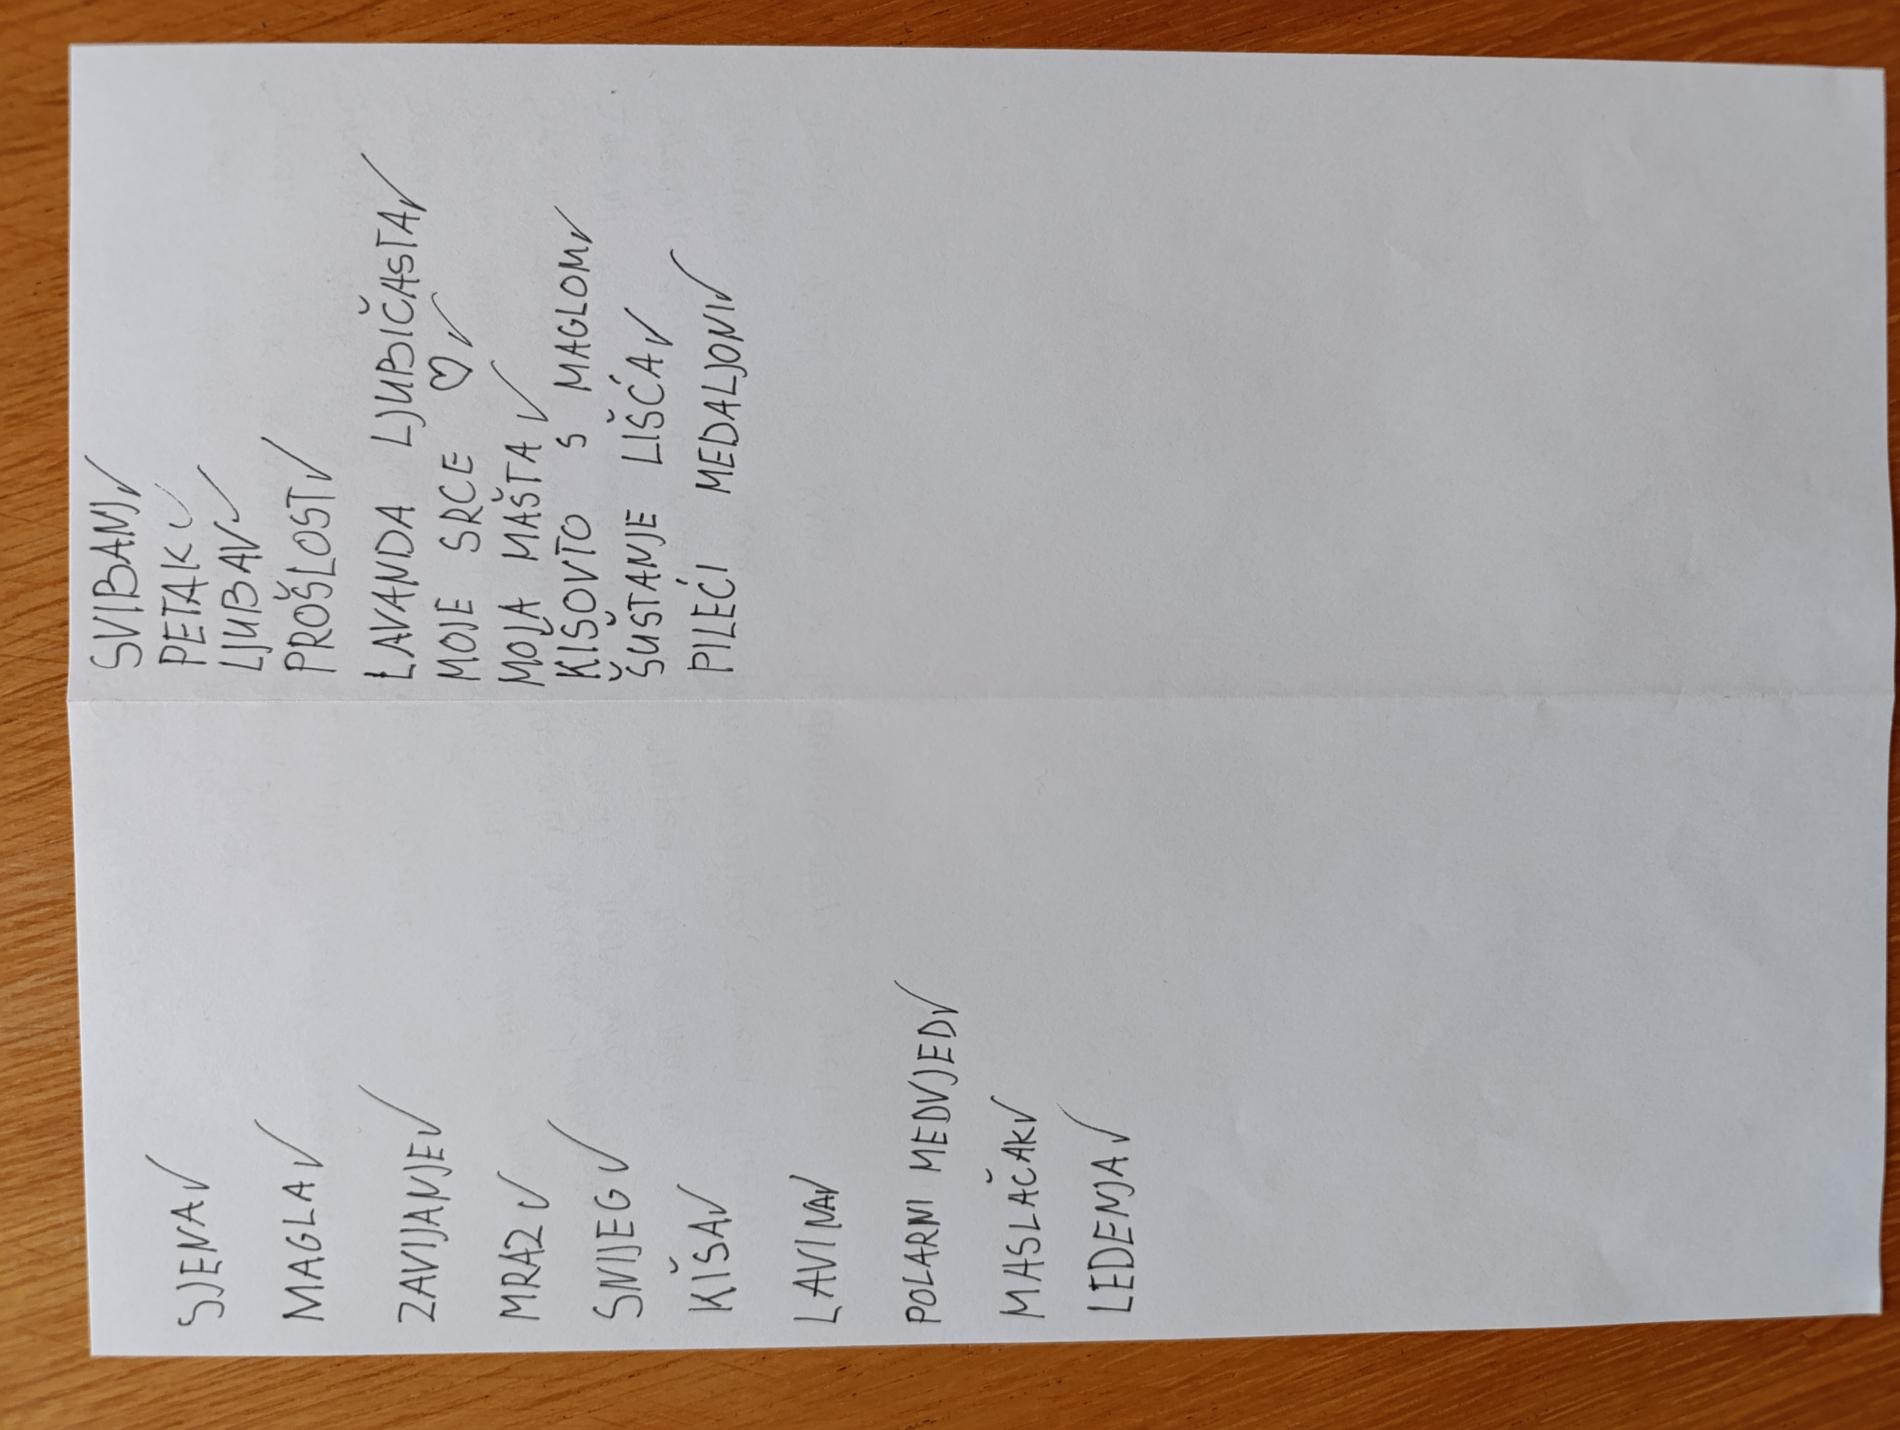 SJENA ✓
MAGLA ✓
ZAVIJANJE ✓
MRAZ ✓
SNIJEG ✓
KIŠA ✓
LAVINA ✓
POLARNI MEDVJED ✓
MASLAČAK ✓
LEDENJA ✓
SVIBANJ ✓
PETAK ✓
LJUBAV ✓
PROŠLOST ✓
LAVANDA LJUBIČASTA ✓
MOJE SRCE ♡ ✓
MOJA MAŠTA ✓
KIŠOVTO S MAGLOM ✓
ŠUSTANJE LIŠĆA ✓
PILEĆI MEDALJONI ✓